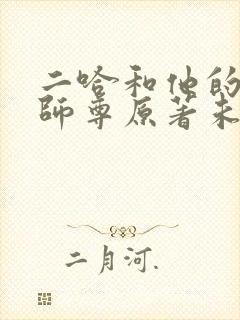 二哈和他的
師尊原著未
二月河.